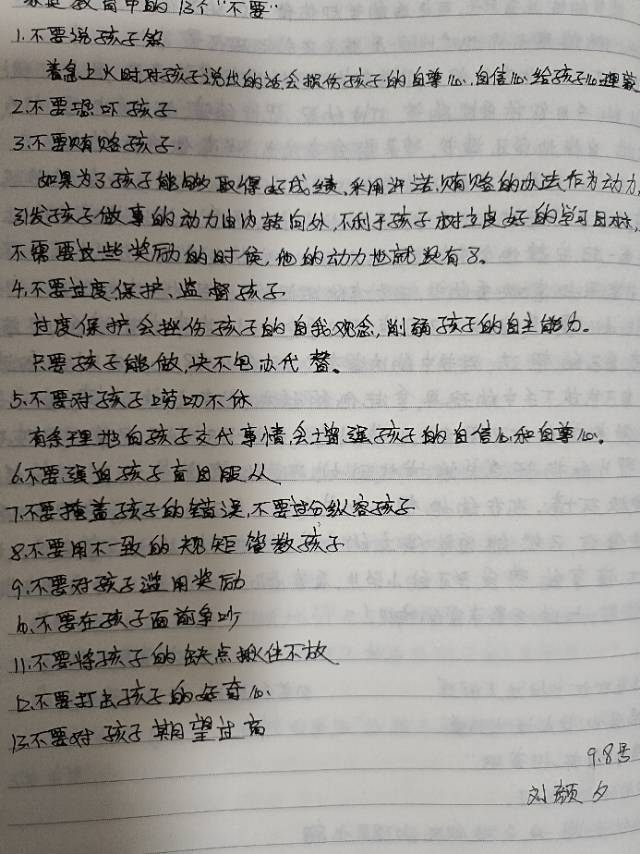 家庭教育中的13个"不要"
1.不要说孩子笨
着急上火时对孩子说出的话会损伤孩子的自尊心,自信心,给孩子心理蒙
2.不要恐吓孩子
3.不要贿赂孩子.
如果为了孩子能够取得好成绩,采用许诺,贿赂的办法作为动力,
引发孩子做事的动力由内转向外,不利于孩子树立良好的学习目标,
不需要这些奖励的时候,他的动力也就没有了。
4.不要过度保护、监督孩子
过度保护,会挫伤孩子的自我观念,削弱孩子的自主能力。
只要孩子能做,决不包办代替。
5.不要对孩子唠叨不休
有条理地向孩子交代事情,会增强孩子的自信心和自尊心。
6.不要强迫孩子盲目服从
7.不要掩盖孩子的错误,不要过分纵容孩子
8.不要用不一致的规矩管教孩子
9.不要对孩子滥用奖励
10.不要在孩子面前争吵
11.不要将孩子的缺点揪住不放
12.不要打击孩子的好奇心.
13.不要对孩子期望过高
9.8号
刘颜夕